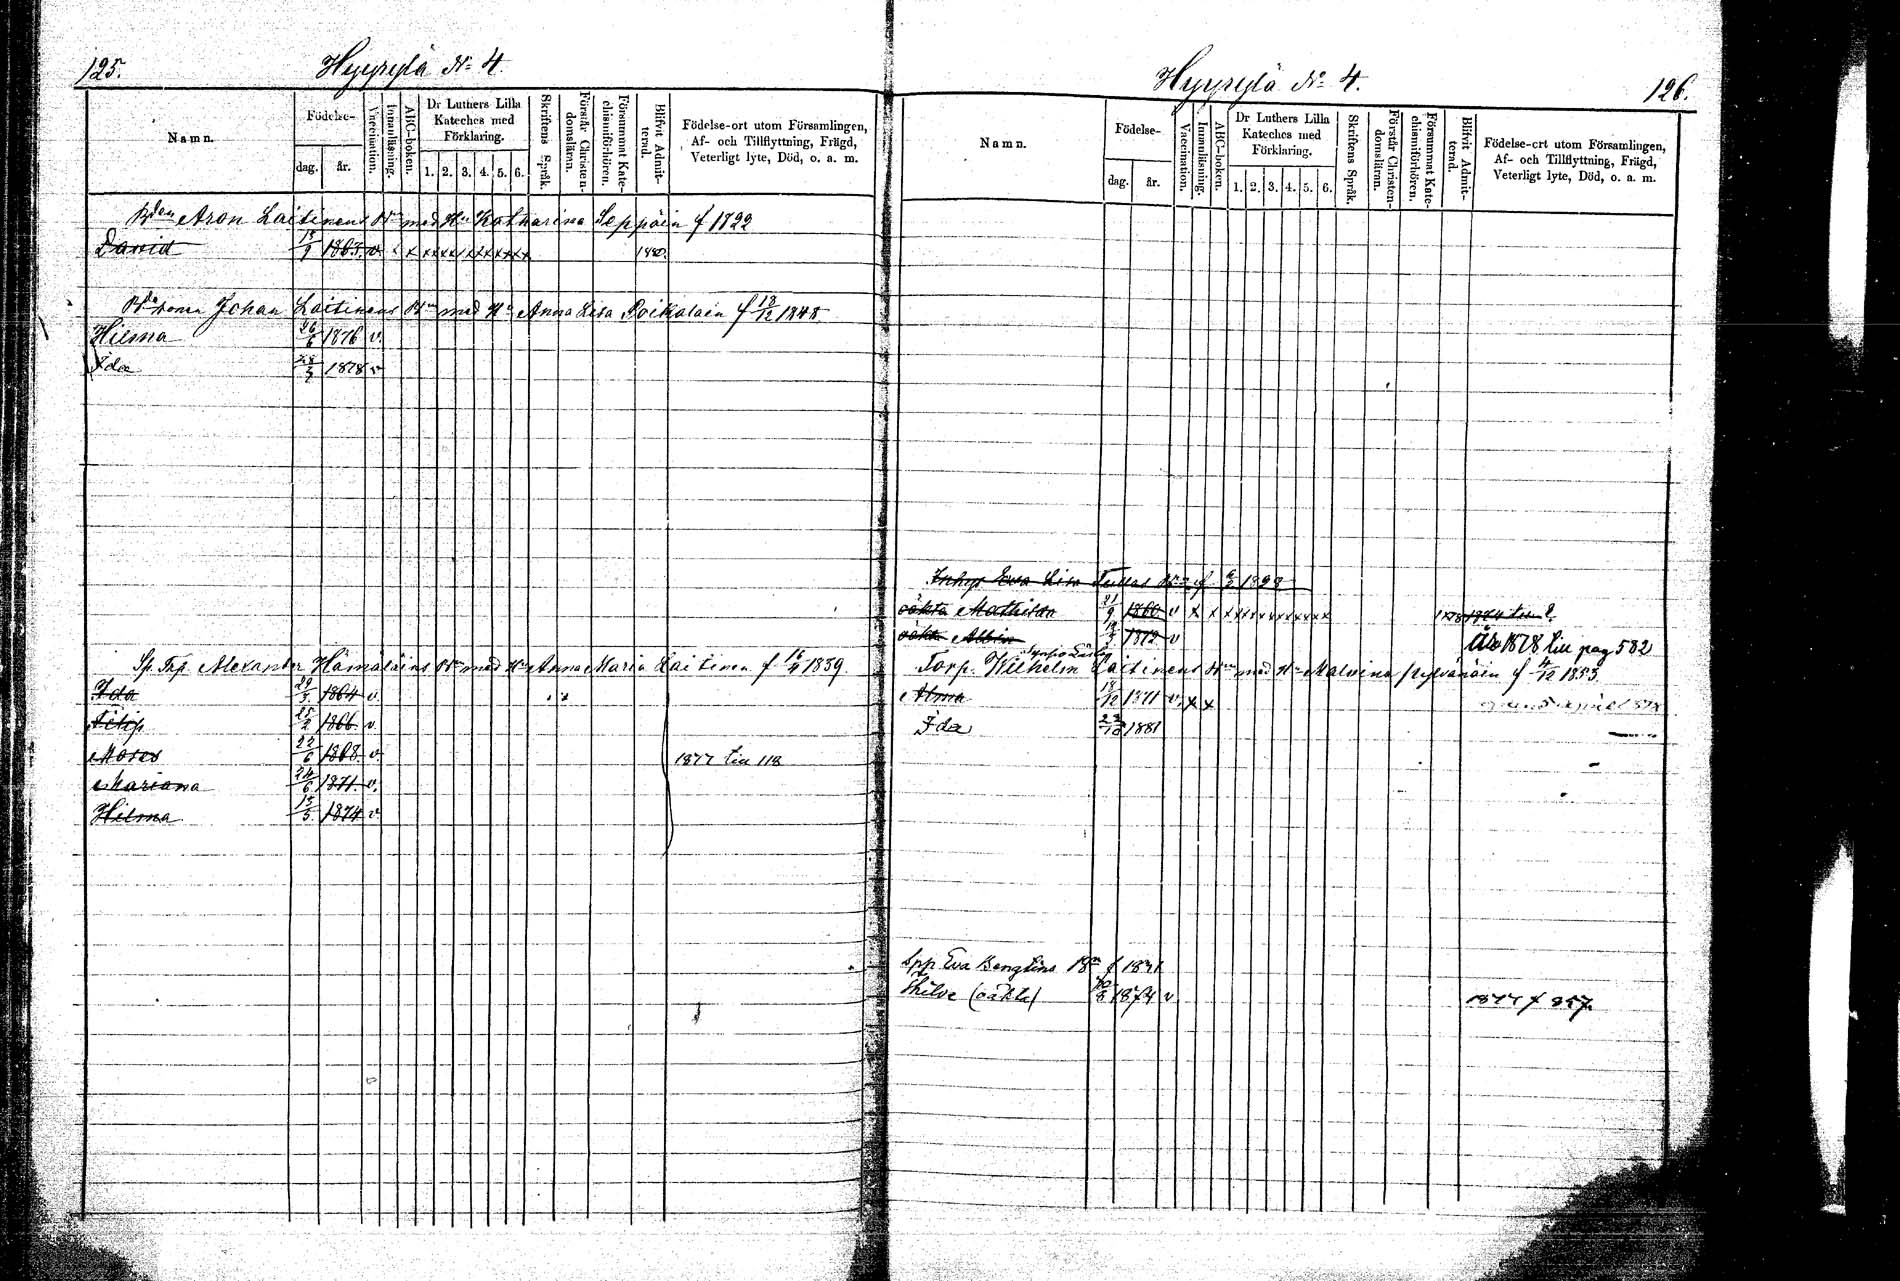 125.
Hyyrylä No 4.
Namn.
Födelse-
dag.
år.
Vaccination.
Innanläsning.
ABC-boken.
Dr Luthers Lilla
Kateches med
Förklaring.
1. 2. 3. 4. 5. 6.
Skriftens Språk.
Förstår Christen-
domsläran.
Försummat Kate-
chismiförhören.
Blifvit Admit-
terad.
Födelse-ort utom Församlingen,
Af- och Tillflyttning, Frägd,
Veterligt lyte, Död, o. a. m.
Aron Laitinens Bn med Hu Katharina Seppäin f 1822
David 1863. v. x x x x x x x x x x x 1880.
Johan Laitinens Bn med Hu Anna Lisa Poikolain f 18/12 1848
Hilma 26/6 1876 v.
Ida 1878 v
Sp. Trp. Alexander Hämäläins Bn med Hu Anna Maria Laitinen f 1839.
Ida 29/3. 1864 v.
Filip 25/2 1866. v
Moses 22/6 1868 v. 1877 till 118
Mariana 24/6 1871 v.
Hilma 15/5. 1874 v
Hyyrylä No 4.
126.
Namn.
Födelse-
dag.
år.
Vaccination.
Innanläsning.
ABC-boken.
Dr Luthers Lilla
Kateches med
Förklaring.
1. 2. 3. 4. 5. 6.
Skriftens Språk.
Förstår Christen-
domsläran.
Försummat Kate-
chismiförhören.
Blifvit Admit-
terad.
Födelse-ort utom Församlingen,
Af- och Tillflyttning, Frägd,
Veterligt lyte, Död, o. a. m.
Inhys Eva Lisa Bn f
oäkta Mathilda 21/9 1860 v x x x x x x x x x x x
oäkta Albin 1872 v 1878 till pag 582
Torp. Wilhelm Laitinens Bn med Hu Malvina Pylvänäin f 4/12 1853.
Alma 1871 v. x x
Ida 1881
Eva Bengtins Bn f
(oäkta) 1874 v 1877 f 857.